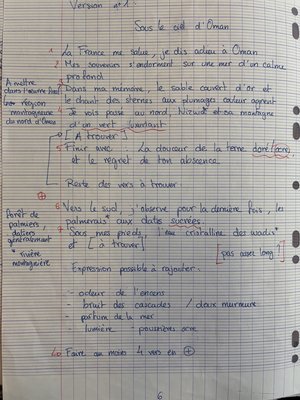 Version n°1.
Sous le ciel d'Oman
1 La France me salue, je dis adieu à Oman
2 Mes souvenirs s'endorment sur une mer d'un calme
profond
3 Dans ma mémoire, le sable couvert d'or et
le chant des sternes aux plumages couleur argent
4 Je vois passer au nord, Nizwa* et sa montagne
d'un vert
[A trouver]
5 Finir avec : La douceur de la terre doré ocre,
et le regret de ton absence.
Reste des vers à trouver
6 Vers le sud, j'observe pour la dernière fois, les
palmeraies* aux dattes sucrées.
7 Sous mes pieds, l'eau cristalline des wadis*
et [à trouver]
[pas assez long ?]
Expression possible à rajouter :
- odeur de l'encens
- bruit des cascades / doux murmure
- parfum de la mer
- lumière - poussières ocre
Faire au moins 4 vers en +
A mettre
dans l'œuvre
région
montagneuse
du nord d'Oman
Forêt de
palmiers,
dattiers
généralement
rivière
montagneuse
6